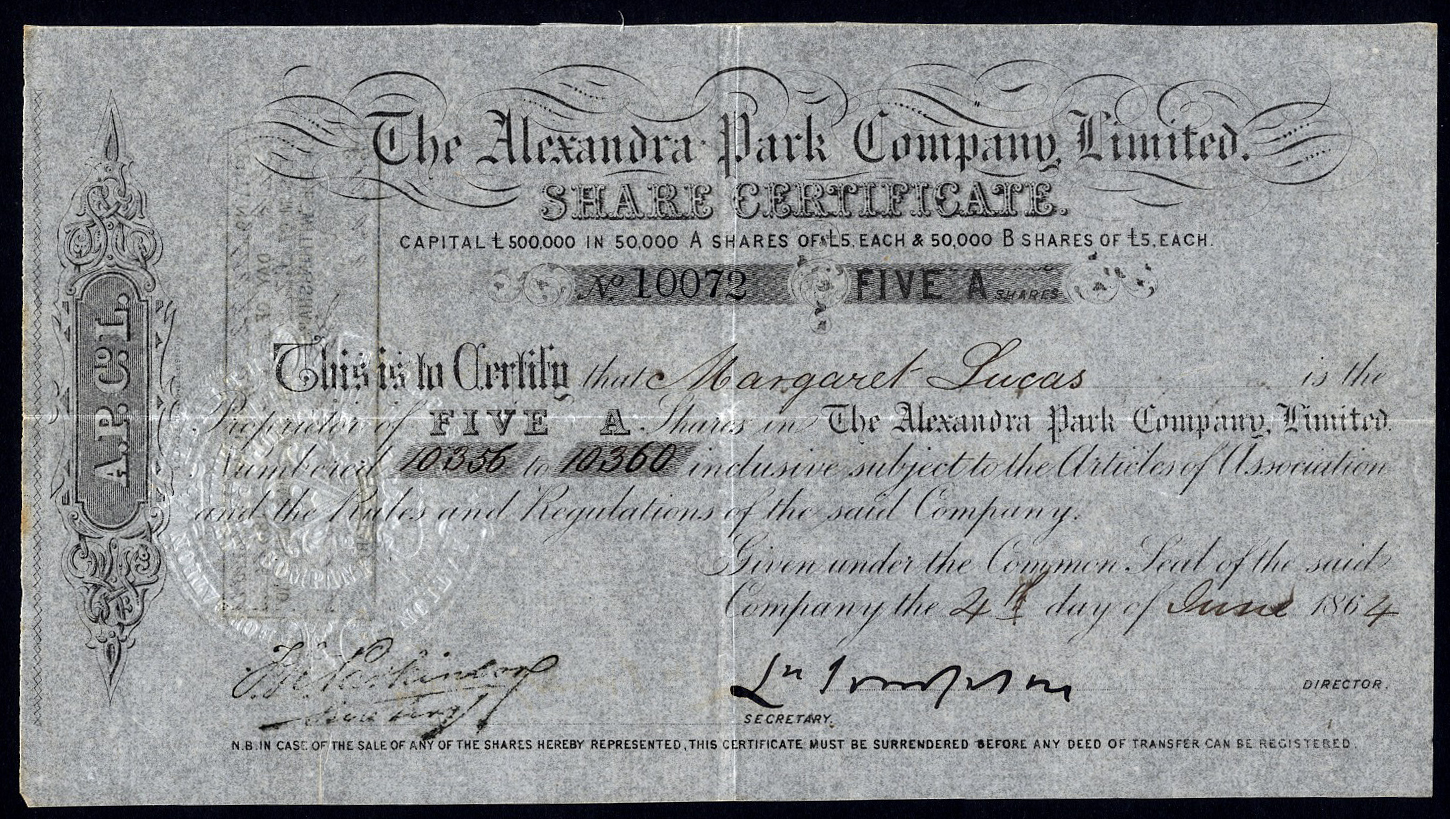 The Alexandra Park Company, Limited.
SHARE CERTIFICATE.
CAPITAL £500,000 IN 50,000 A SHARES OF £5, EACH & 50,000 B SHARES OF £5, EACH.
No 10072 FIVE A SHARES
A.P. Co. L.
This is to Certify that Margaret Lucas is the
Proprietor of FIVE A Shares in The Alexandra Park Company, Limited.
Numbered 10356 to 10360 inclusive subject to the Articles of Association
and the Rules and Regulations of the said Company.
Given under the Common Seal of the said
Company the 4th day of June 1864
DIRECTOR.
SECRETARY.
N.B. IN CASE OF THE SALE OF ANY OF THE SHARES HEREBY REPRESENTED, THIS CERTIFICATE MUST BE SURRENDERED BEFORE ANY DEED OF TRANSFER CAN BE REGISTERED.